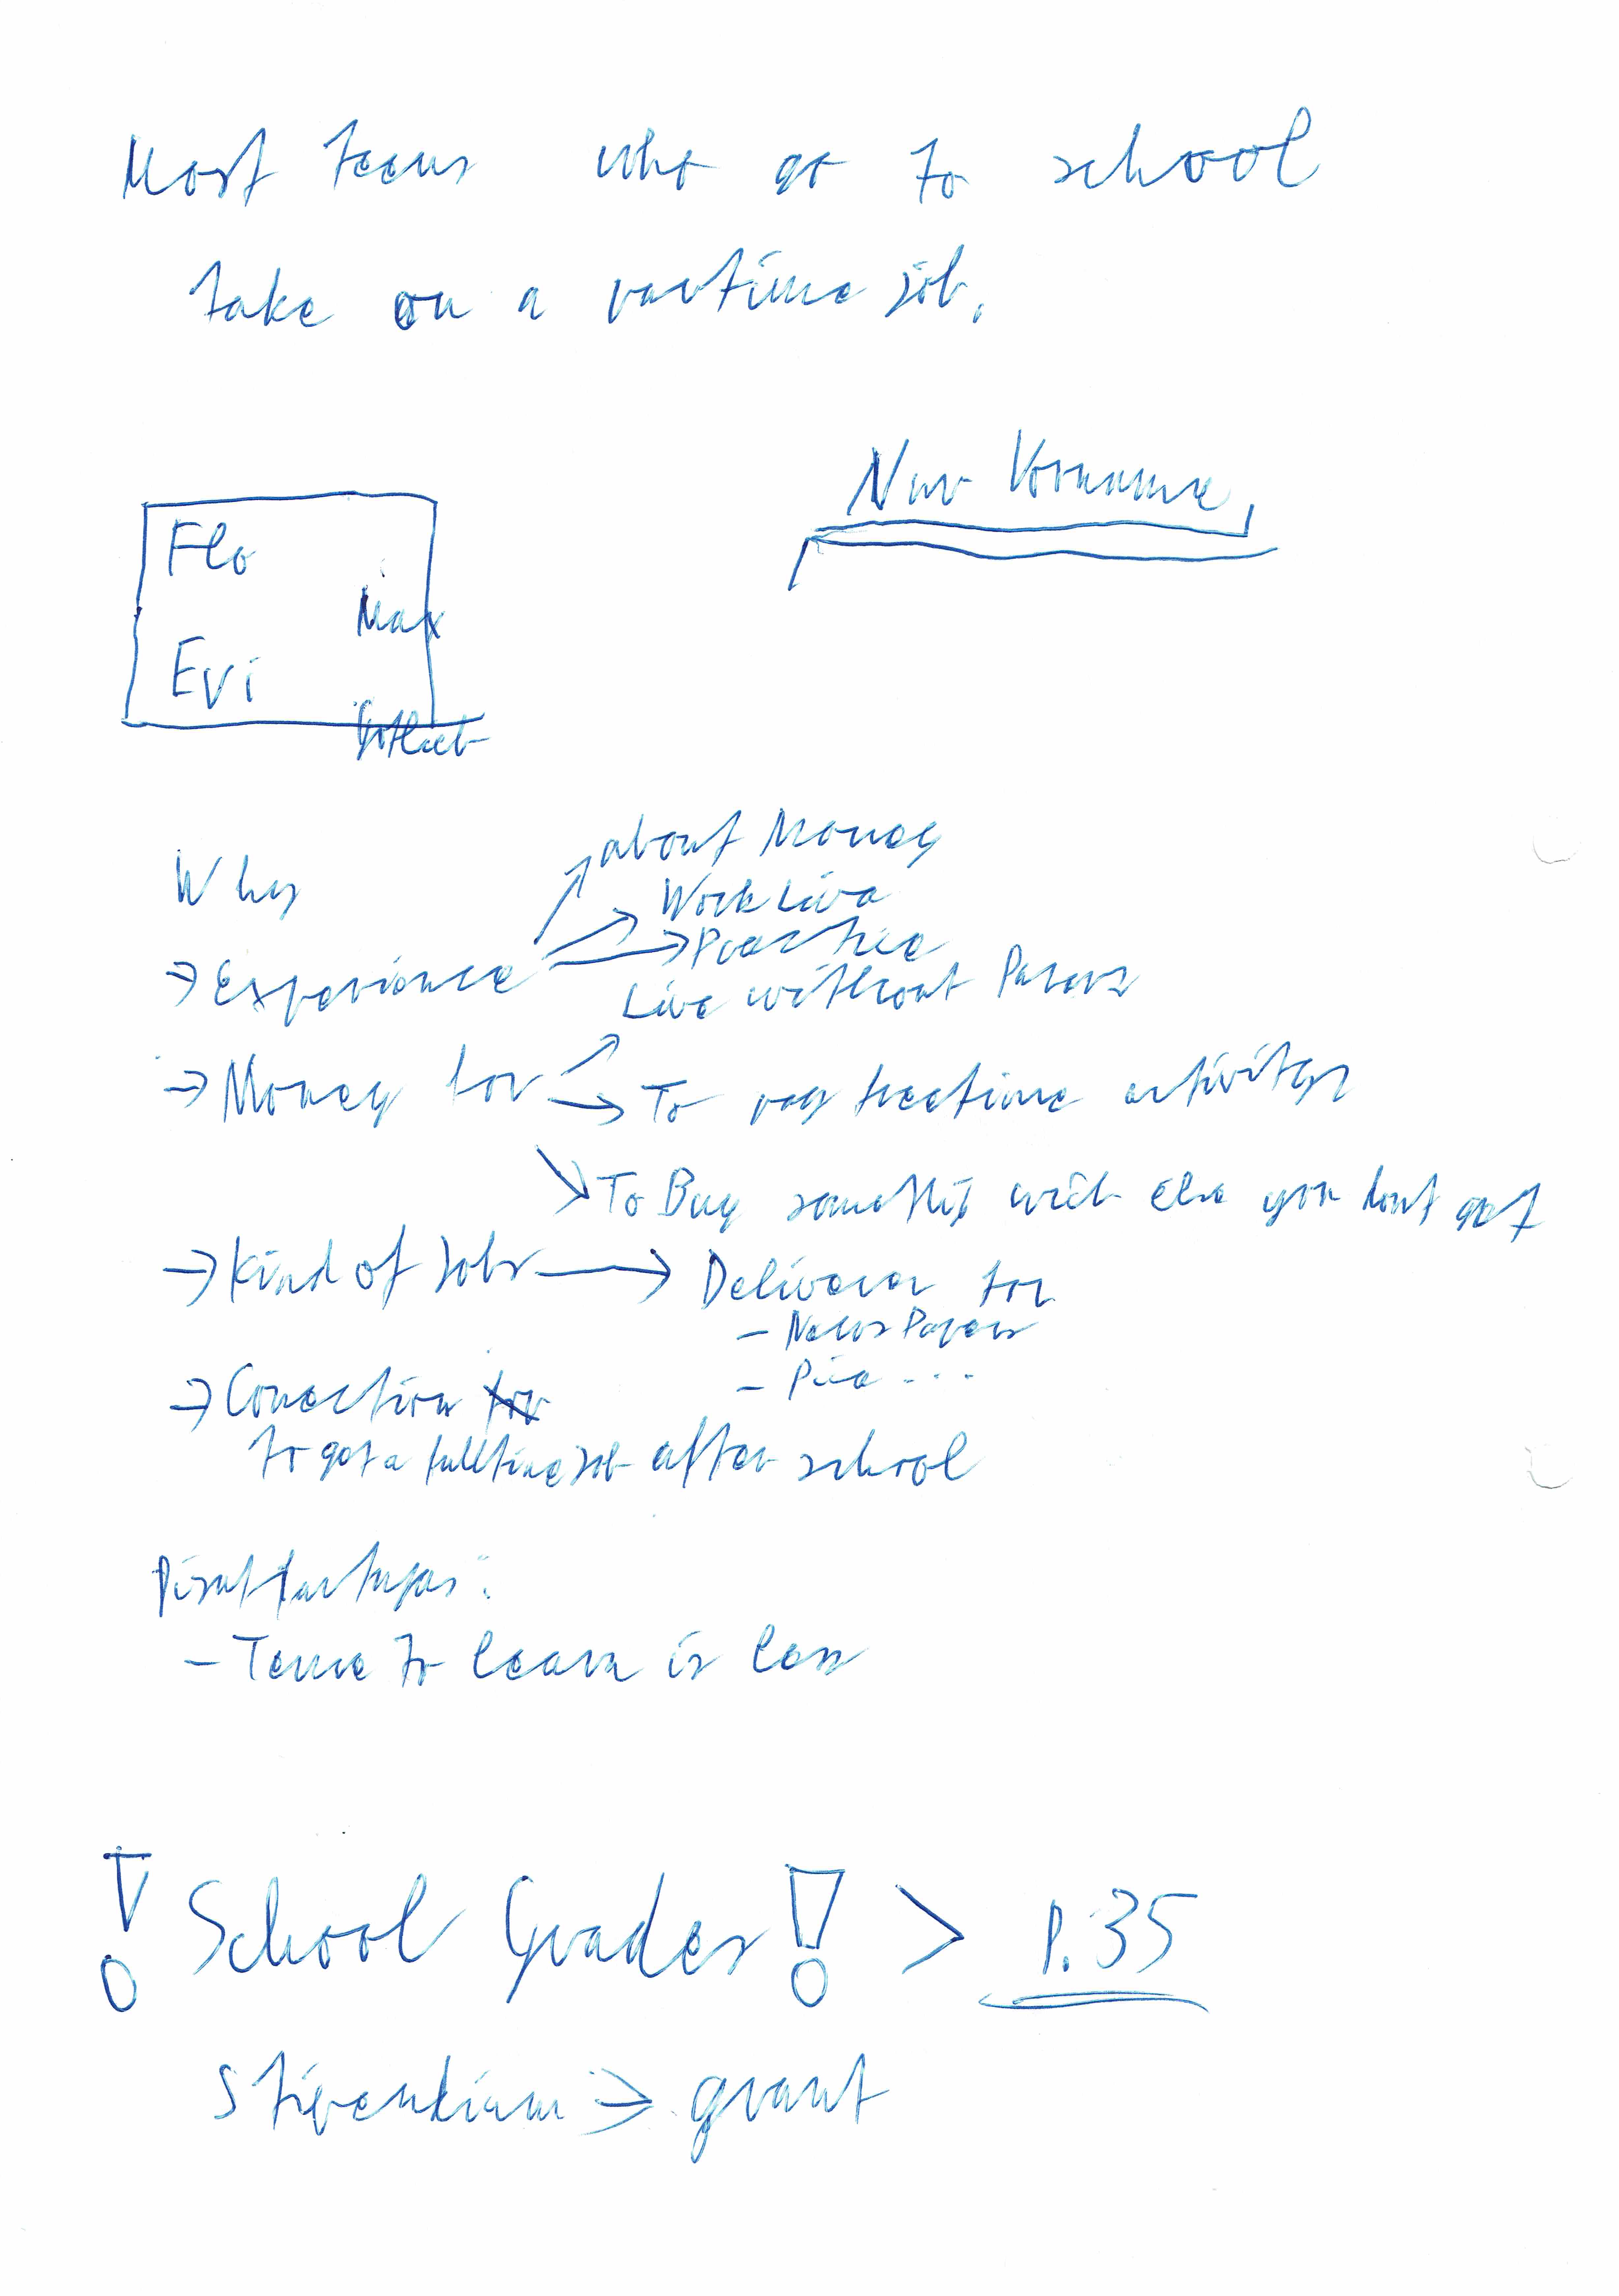 Most teens who go to school
take on a partime job.
Nur Vorname
Flo
Max
Evi
Why
about Money
Work Live
→ Experience → Practice
Live without Parens
→ Money for
→ To pay freetime activitys
To Buy somethig else you dont get
→ Kind of Jobs → Deliverer for
- News Papers
- Piza ...
→ Conection for
to get a fulltime job after school
- Teme to learn is less
! School Grades! > p. 35
Stipendium → grant